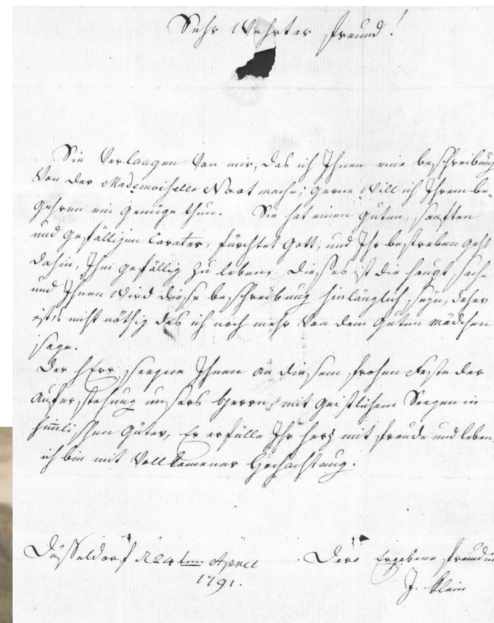 Sehr Wehrter Freund!
Sie Verlangen Von mir, das ich Ihnen eine beschreibung
Von der Mademoiselle Noot mache; gerne Will ich Ihrem be-
gehren ein genüge thun. Sie hat einen guten, sanften
und gefälligen Caracter, fürchtet Gott, und Ihr bestreben geht
dahin, Ihm gefällig zu leben. Dieses ist die haupt sache
und Ihnen Wird diese beschreibung hinlänglich seyn, daher
ists nicht nöthig das ich noch mehr Von dem guten mädchen
sage.
Der HErr seegne Ihnen an diesem frohen Feste der
Auferstehung unsers Herrn, mit geistlichem Seegen in
himlischen Güter, Er erfülle Ihr herz mit freude und leben,
ich bin mit Vollkomener Hochachtung.
Düsseldorf April
1791.
Dero Ergebene freundin
J. Klein